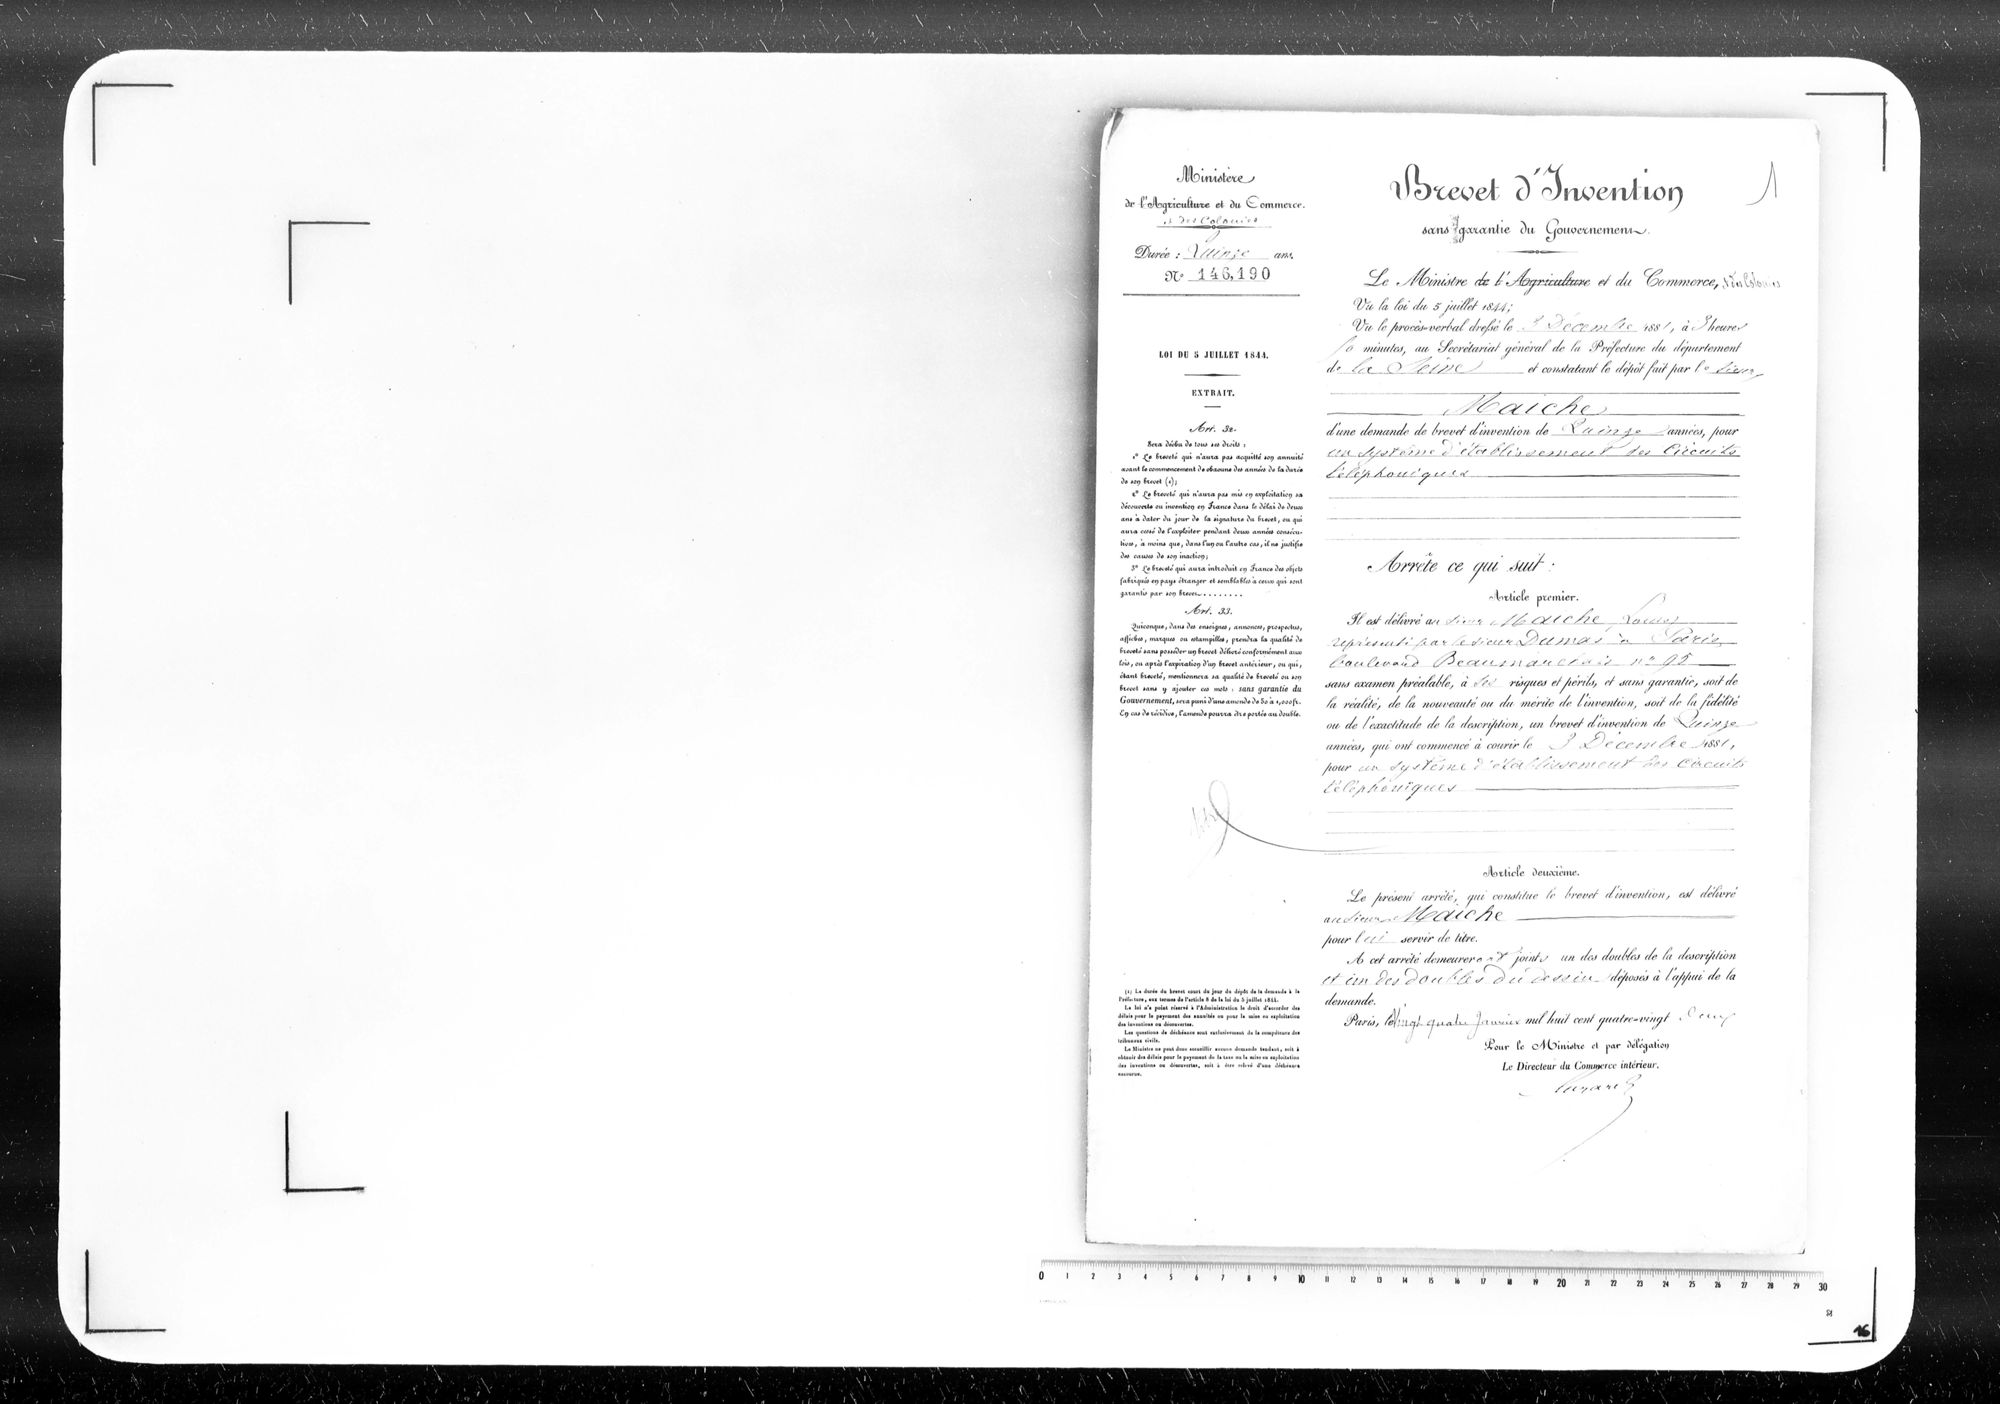 Ministère
de l'Agriculture et du Commerce.
& des Colonies
Durée : Quinze ans.
N° 146,190
LOI DU 5 JUILLET 1844.
EXTRAIT.
Art. 32.
Sera déchu de tous ses droits :
1° Le breveté qui n'aura pas acquitté son annuité
avant le commencement de chacune des années de la durée
de son brevet (1);
2° Le breveté qui n'aura pas mis en exploitation sa
découverte ou invention en France dans le délai de deux
ans à dater du jour de la signature du brevet, ou qui
aura cessé de l'exploiter pendant deux années consécu-
tives, à moins que, dans l'un ou l'autre cas, il ne justifie
des causes de son inaction;
3° Le breveté qui aura introduit en France des objets
fabriqués en pays étranger et semblables à ceux qui sont
garantis par son brevet........
Art. 33.
Quiconque, dans des enseignes, annonces, prospectus,
affiches, marques ou estampilles, prendra la qualité de
breveté sans posséder un brevet délivré conformément aux
lois, ou après l'expiration d'un brevet antérieur, ou qui,
étant breveté, mentionnera sa qualité de breveté ou son
brevet sans y ajouter ces mots : sans garantie du
Gouvernement, sera puni d'une amende de 50 à 1,000 fr.
En cas de récidive, l'amende pourra être portée au double.
(1) La durée du brevet court du jour du dépôt de la demande à la
Préfecture, aux termes de l'article 8 de la loi du 5 juillet 1844.
La loi n'a point réservé à l'Administration le droit d'accorder des
délais pour le payement des annuités ou pour la mise en exploitation
des inventions ou découvertes.
Les questions de déchéance sont exclusivement de la compétence des
tribunaux civils.
Le Ministre ne peut donc accueillir aucune demande tendant, soit à
obtenir des délais pour le payement de la taxe ou la mise en exploitation
des inventions ou découvertes, soit à être relevé d'une déchéance
encourue.
1
Brevet d'Invention
sans garantie du Gouvernement.
Le Ministre de l'Agriculture et du Commerce, & des Colonies
Vu la loi du 5 juillet 1844;
Vu le procès-verbal dressé le 3 Décembre 1881, à 3 heures
minutes, au Secrétariat général de la Préfecture du département
de la Seine et constatant le dépôt fait par le Sieur
Maiche
d'une demande de brevet d'invention de Quinze années, pour
un système d'établissement des circuits
téléphoniques
Arrête ce qui suit :
Article premier.
Il est délivré au Sieur Maiche, Louis
représenté par le sieur Dumas à Paris,
boulevard Beaumarchais n° 95
sans examen préalable, à ses risques et périls, et sans garantie, soit de
la réalité, de la nouveauté ou du mérite de l'invention, soit de la fidélité
ou de l'exactitude de la description, un brevet d'invention de Quinze
années, qui ont commencé à courir le 3 Décembre 1881,
pour un système d'établissement des circuits
téléphoniques
Article deuxième.
Le présent arrêté, qui constitue le brevet d'invention, est délivré
au Sieur Maiche
pour lui servir de titre.
A cet arrêté demeureront joints un des doubles de la description
et un des doubles du dessin déposés à l'appui de la
demande.
Paris, le Vingt quatre Janvier mil huit cent quatre-vingt deux
Pour le Ministre et par délégation
Le Directeur du Commerce intérieur.
0 1 2 3 4 5 6 7 8 9 10 11 12 13 14 15 16 17 18 19 20 21 22 23 24 25 26 27 28 29 30
16